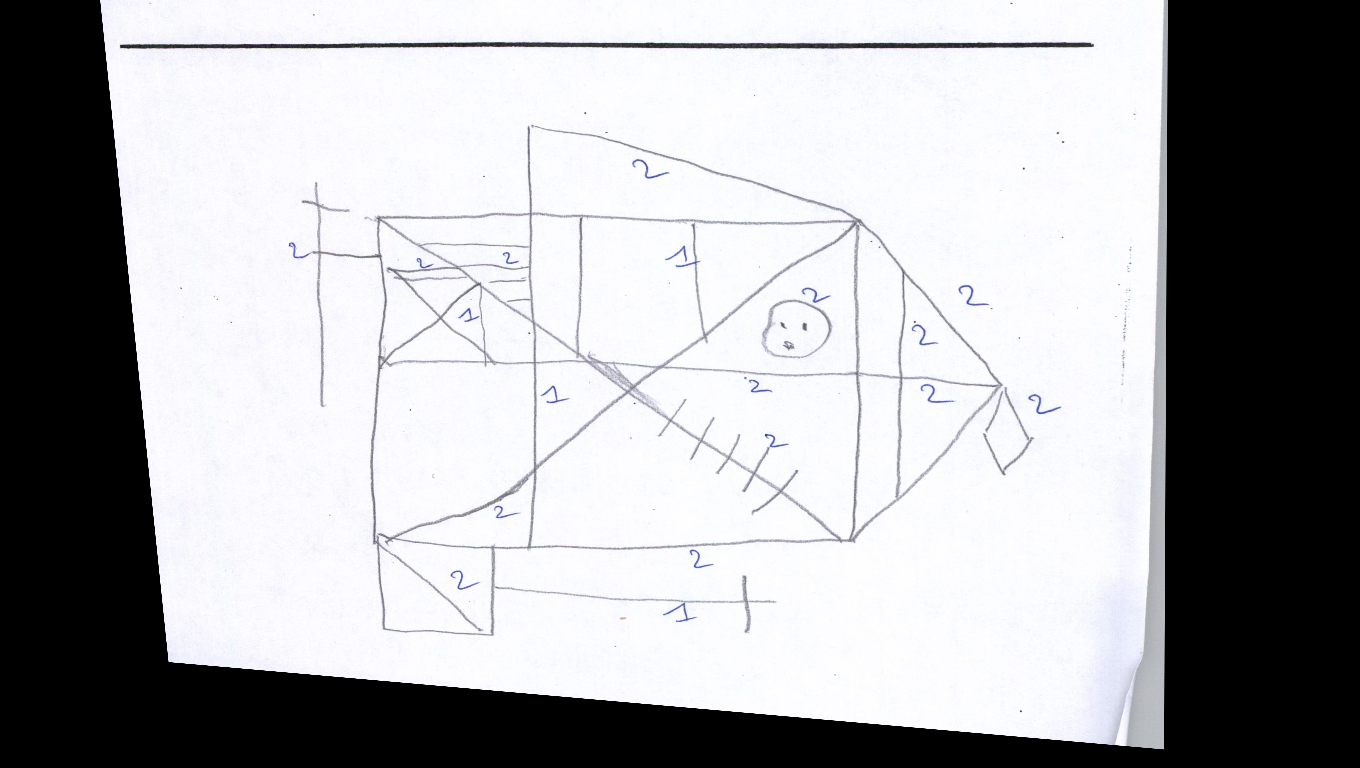 2
2
2 2
1
1
2
2
2
1
2
2
2
2
1
2
2
2
2
1